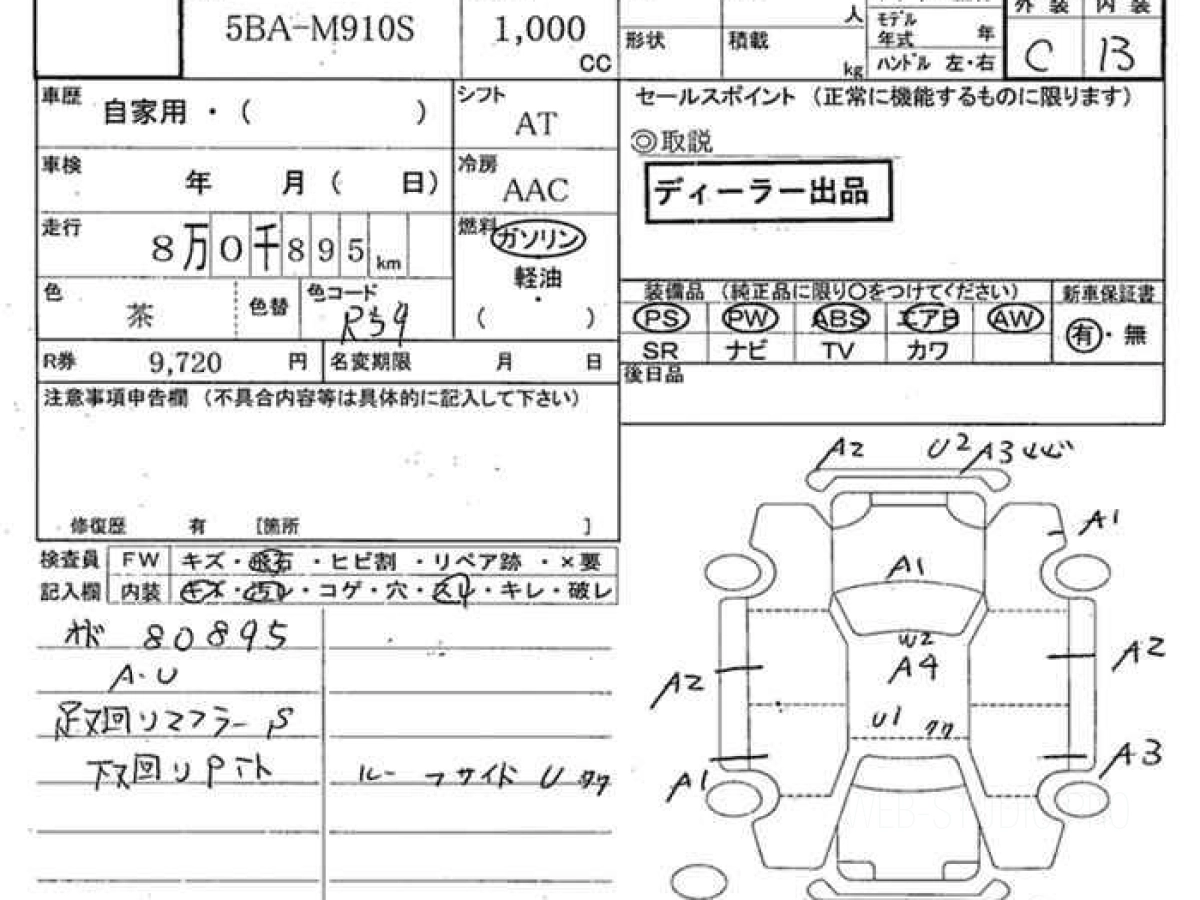 5BA-M910S
1,000
CC
人
形状
積載
kg
モデル
年式
年
ハンドル 左・右
外 装
内 装
C
B
車歴
自家用 ・ ( )
シフト
AT
車検
年 月 ( 日)
冷房
AAC
走行
8万0千895 km
燃料
ガソリン
軽油
・
( )
色
茶
色替
色コード
R59
R券
9,720 円
名変期限 月 日
セールスポイント (正常に機能するものに限ります)
◎取説
ディーラー出品
装備品 (純正品に限り○をつけてください)
新車保証書
PS PW ABS エアB AW
有・無
SR ナビ TV カワ
後日品
注意事項申告欄 (不具合内容等は具体的に記入して下さい)
修復歴 有 [箇所 ]
検査員
記入欄
FW キズ・飛石 ・ヒビ割 ・リペア跡 ・×要
内装 キズ・汚レ・コゲ・穴・スレ・キレ・破レ
オド 80895
A・U
足回リマフラー S
下回リPイト
ルーフサイド U
A2
U2
A3
A1
A1
W2
A4
A2
A2
U1
A1
A3
WEB-STUDIO.PRO